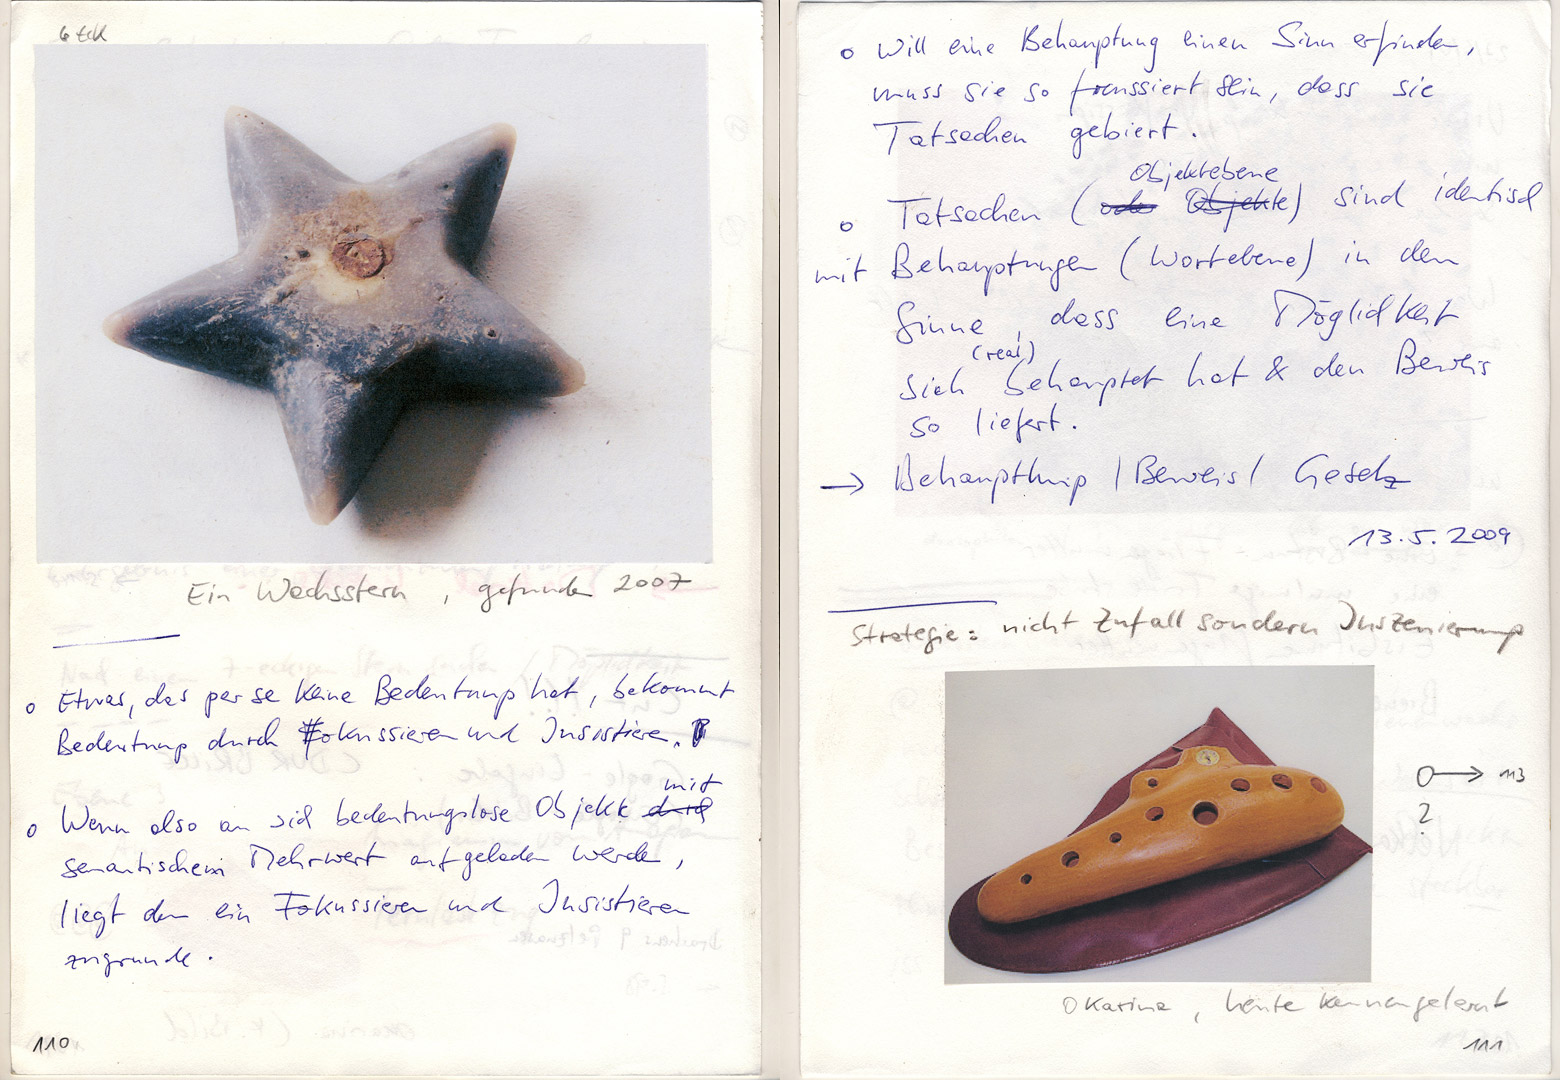 6 Eck
Ein Wachsstern, gefunden 2007
o Etwas, das per se keine Bedeutung hat, bekommt
Bedeutung durch Fokussieren und Insistieren.
mit
o Wenn also an sich bedeutungslose Objekte durch
semantischem Mehrwert aufgeladen werden,
liegt dem ein Fokussieren und Insistieren
zugrunde.
110
o Will eine Behauptung einen Sinn erfinden,
muss sie so forussiert sein, dass sie
Tatsachen gebiert.
Objektebene
o Tatsachen (oder Objekte) sind identisch
mit Behauptungen (Wortebene) in dem
Sinne, dass eine Möglichkeit
(real)
sich behauptet hat & den Beweis
so liefert.
→ Behauptung / Beweis / Gesetz
13.5.2009
Strategie: nicht Zufall sondern Inszenierung
O→ 113
?
Okarina, heute kennengelernt
111